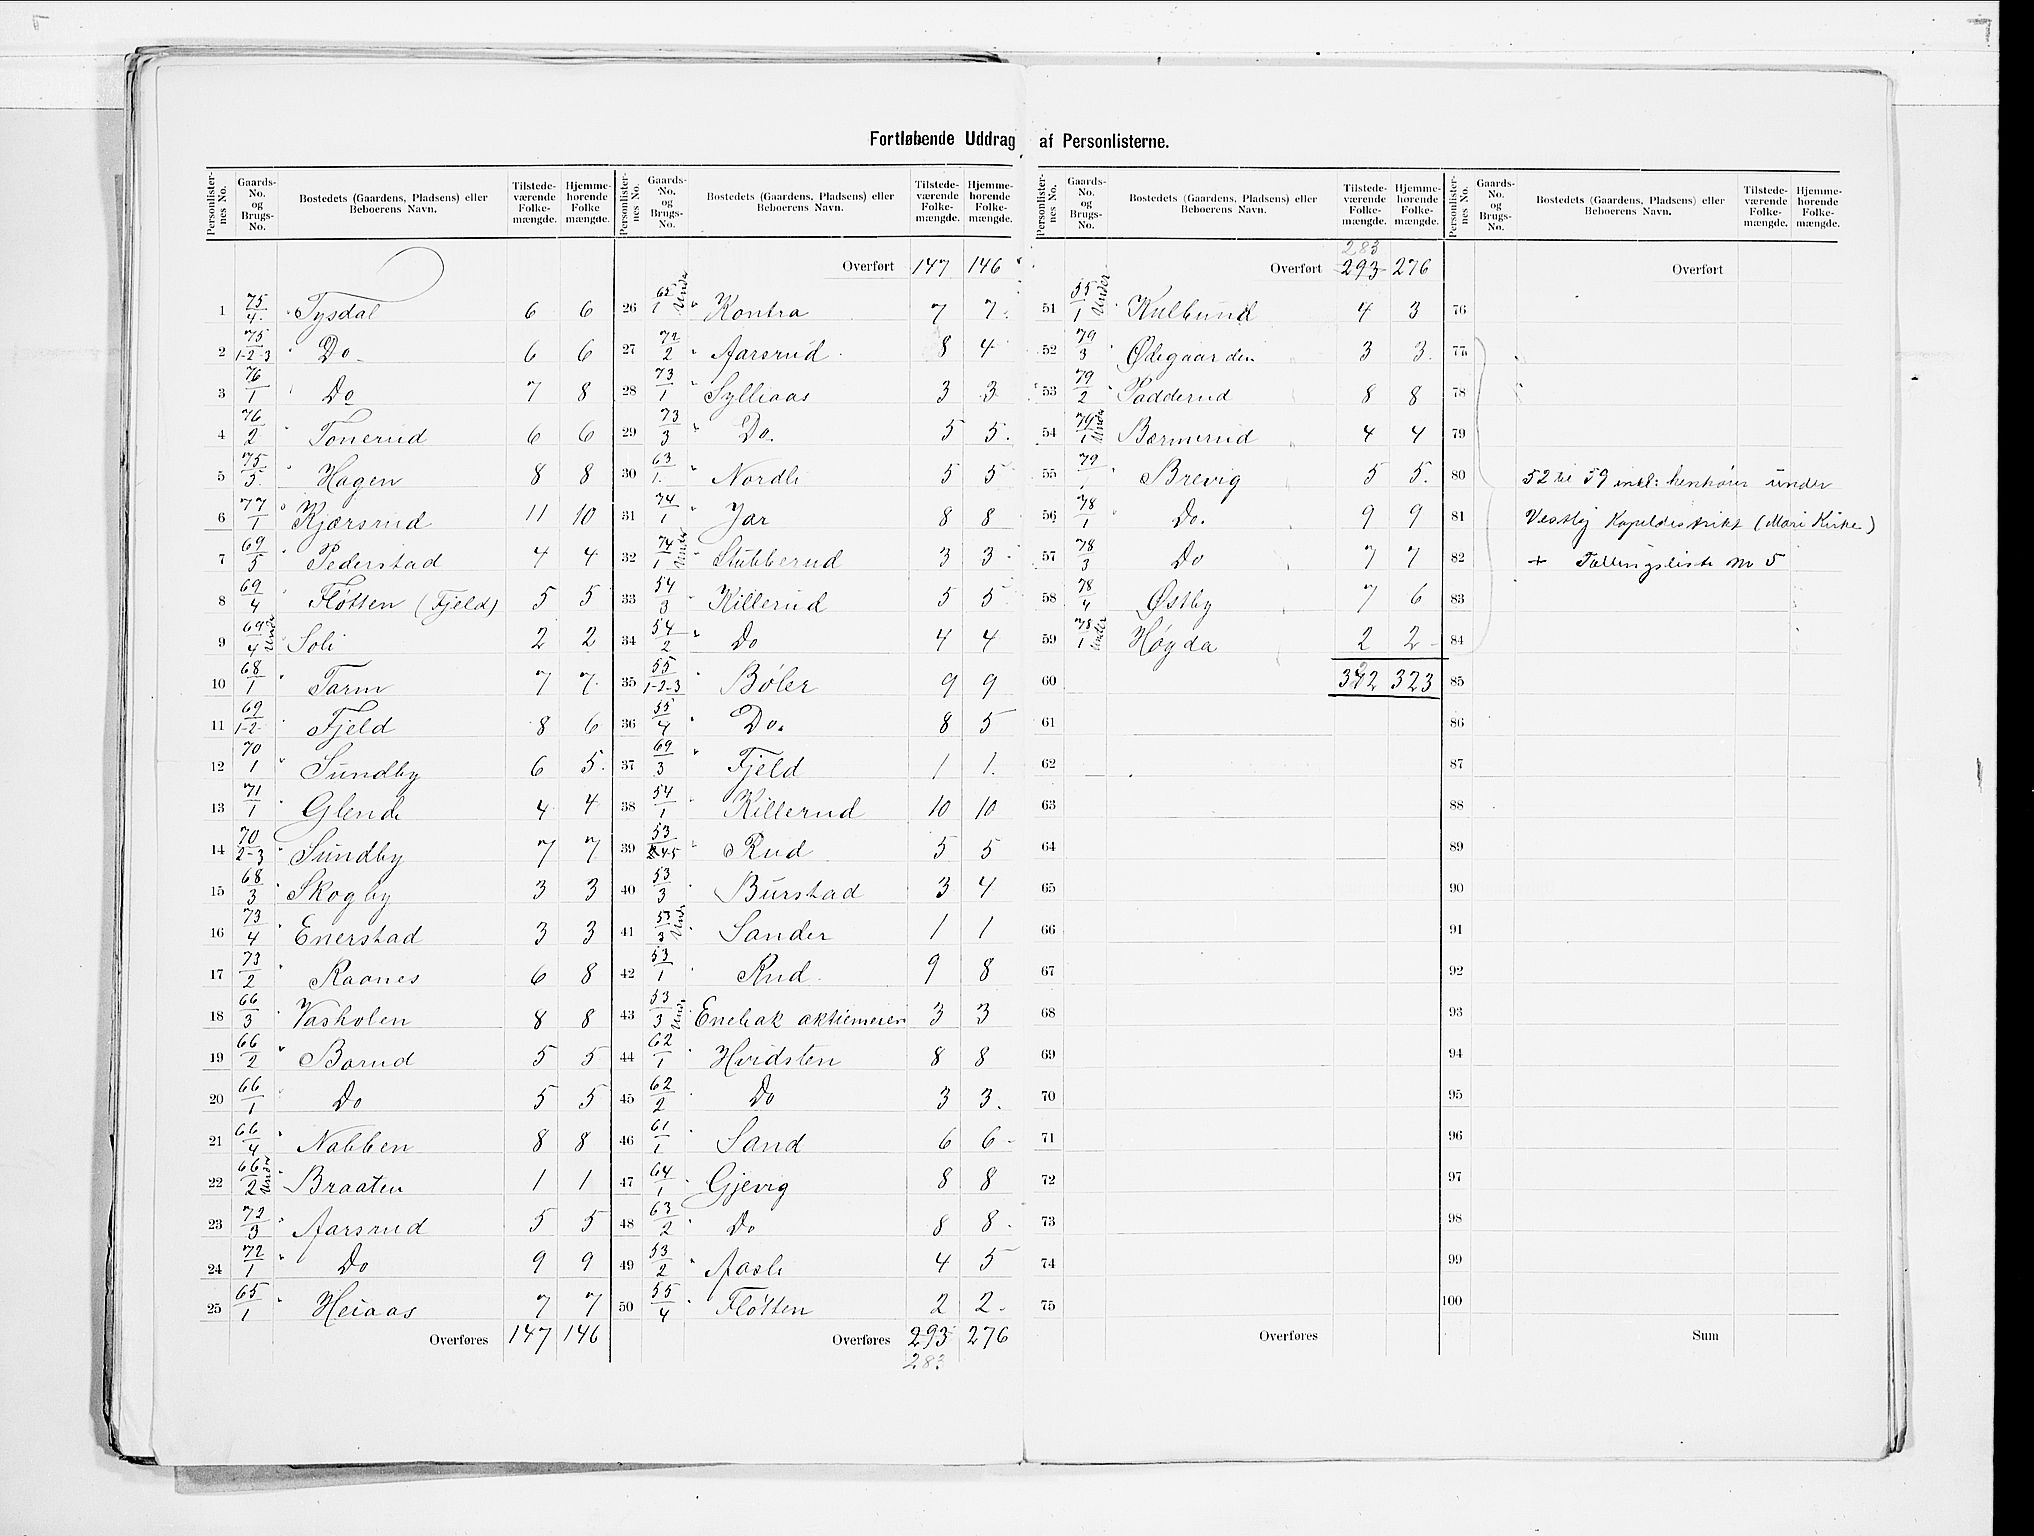 Fortløbende Uddrag af Personlisterne.
Personlister-nes No. | Gaards-No. og Brugs-No. | Bostedets (Gaardens, Pladsens) eller Beboerens Navn. | Tilstede-værende Folke-mængde. | Hjemme-hørende Folke mængde.
1 75/4. Tysdal 6 6
2 75/1-2-3 Do 6 6
3 76/1 Do 7 8
4 76/2 Tonerud 6 6
5 75/5. Hagen 8 8
6 77/1 Kjærsrud 11 10
7 69/5 Pederstad 4 4
8 69/4 Fløtten (Fjeld) 5 5
9 69/4 Under Soli 2 2
10 68/1 Tarm 7 7
11 69/1-2- Fjeld 8 6
12 70/1 Sundby 6 5
13 71/1 Glende 4 4
14 70/2-3 Sundby 7 7
15 68/3 Skogby 3 3
16 73/4 Enerstad 3 3
17 73/2 Raanes 6 8
18 66/3 Vasholen 8 8
19 66/2 Borud 5 5
20 66/1 Do 5 5
21 66/4 Nabben 8 8
22 66/2 Under Braaten 1 1
23 72/3 Aarsrud 5 5
24 72/1 Do 9 9
25 65/1 Heiaas 7 7
Overføres 147 146
Personlister-nes No. | Gaards-No. og Brugs-No. | Bostedets (Gaardens, Pladsens) eller Beboerens Navn. | Tilstede-værende Folke-mængde. | Hjemme-hørende Folke-mængde.
Overført 147 146
26 62/1 Under Kontra 7 7.
27 72/2 Aarsrud 8 4
28 73/1 Sylliaas 3 3
29 73/3 Do. 5 5.
30 63/1. Nordli 5 5
31 74/1 Jar 8 8
32 74/1 Under Stubberud 3 3
33 54/3 Killerud 5 5
34 54/2 Do 4 4
35 55/1-2-3 Bøler 9 9
36 55/4 Do. 8 5
37 69/3 Fjeld 1 1.
38 54/1 Killerud 10 10
39 53/2-4-5 Rud 5 5
40 53/3 Burstad 3 4
41 53/3 Under Sander 1 1
42 53/1 Rud. 9 8
43 53/3 Under Enebak aktiemeieri 3 3
44 62/1 Hvidsten 8 8
45 62/2 Do 3 3.
46 61/1 Sand 6 6
47 64/1 Gjevig 8 8
48 63/2 Do 8 8.
49 53/2 Aasli 4 5
50 55/4 Fløtten 2 2
Overføres 293 276
283
Personlister-nes No. | Gaards-No. og Brugs-No. | Bostedets (Gaardens, Pladsens) eller Beboerens Navn. | Tilstede-værende Folke-mængde. | Hjemme-hørende Folke-mængde.
283
Overført 293 276
51 55/1 Under Kulbund 4 3
52 79/3 Ødegaarden 3 3.
53 79/2 Padderud 8 8
54 79/1 Under Bærmerud 4 4
55 79/1 Brevig 5 5.
56 78/1 Do. 9 9
57 78/3 Do 7 7
58 78/4 Østby 7 6
59 78/1 Under Høgda 2 2
60 323
61
62
63
64
65
66
67
68
69
70
71
72
73
74
75
Overføres
Personlister-nes No. | Gaards-No. og Brugs-No. | Bostedets (Gaardens, Pladsens) eller Beboerens Navn. | Tilstede-værende Folke-mængde. | Hjemme-hørende Folke-mængde.
Overført
76
77
78
79
80 52 til 59 incl: henhører under
81 Vestby Kapeldistrikt (Mari Kirke)
82 + Tællingsliste No 5
83
84
85
86
87
88
89
90
91
92
93
94
95
96
97
98
99
100
Sum